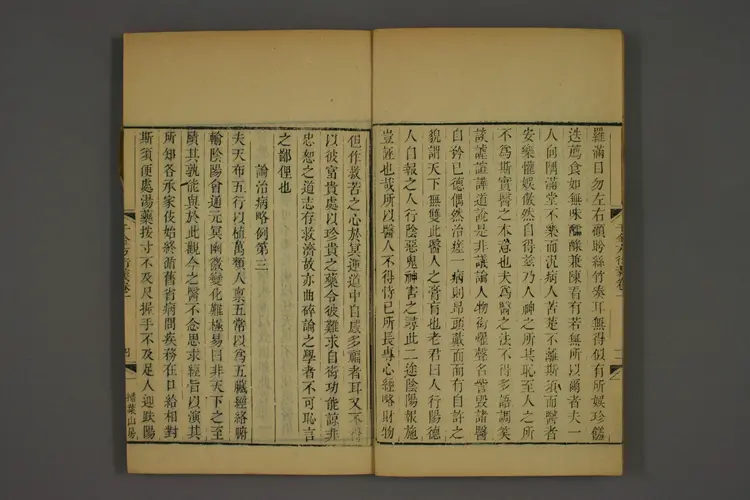 羅滿目勿左右顧眄絲竹奏耳無得似有所娛珍羞
迭薦食如無味醽醁兼陳看有若無所以爾者夫一
人向隅滿堂不樂而況病人苦楚不離斯須而醫者
安樂懽娛傲然自得茲乃人神之所共恥至人之所
不為斯實醫之本意也夫為醫之法不得多語調笑
談謔諠譁道說是非議論人物衒耀聲名訾毀諸醫
自矜已德偶然治瘥一病則昂頭戴面而有自許之
貌謂天下無雙此醫人之膏肓也老君曰人行陽德
人自報之人行陰惡鬼神害之尋此二途陰陽報施
豈誣也哉所以醫人不得恃已所長專心經略財物
但作救苦之心於冥運道中自感多福者耳又不得
以彼富貴處以珍貴之藥令彼難求自衒功能諒非
忠恕之道志存救濟故亦曲碎論之學者不可恥言
之鄙俚也
論治病略例第三
夫天布五行以植萬類人稟五常以為五臟經絡腑
輸陰陽會通元冥幽微變化難極易曰非天下之至
賾其孰能與於此觀今之醫不念思求經旨以演其
所知各承家伎始終循舊省病問疾務在口給相對
斯須便處湯藥按寸不及尺握手不及足人迎趺陽
千金方衍義卷一
四
掃葉山房